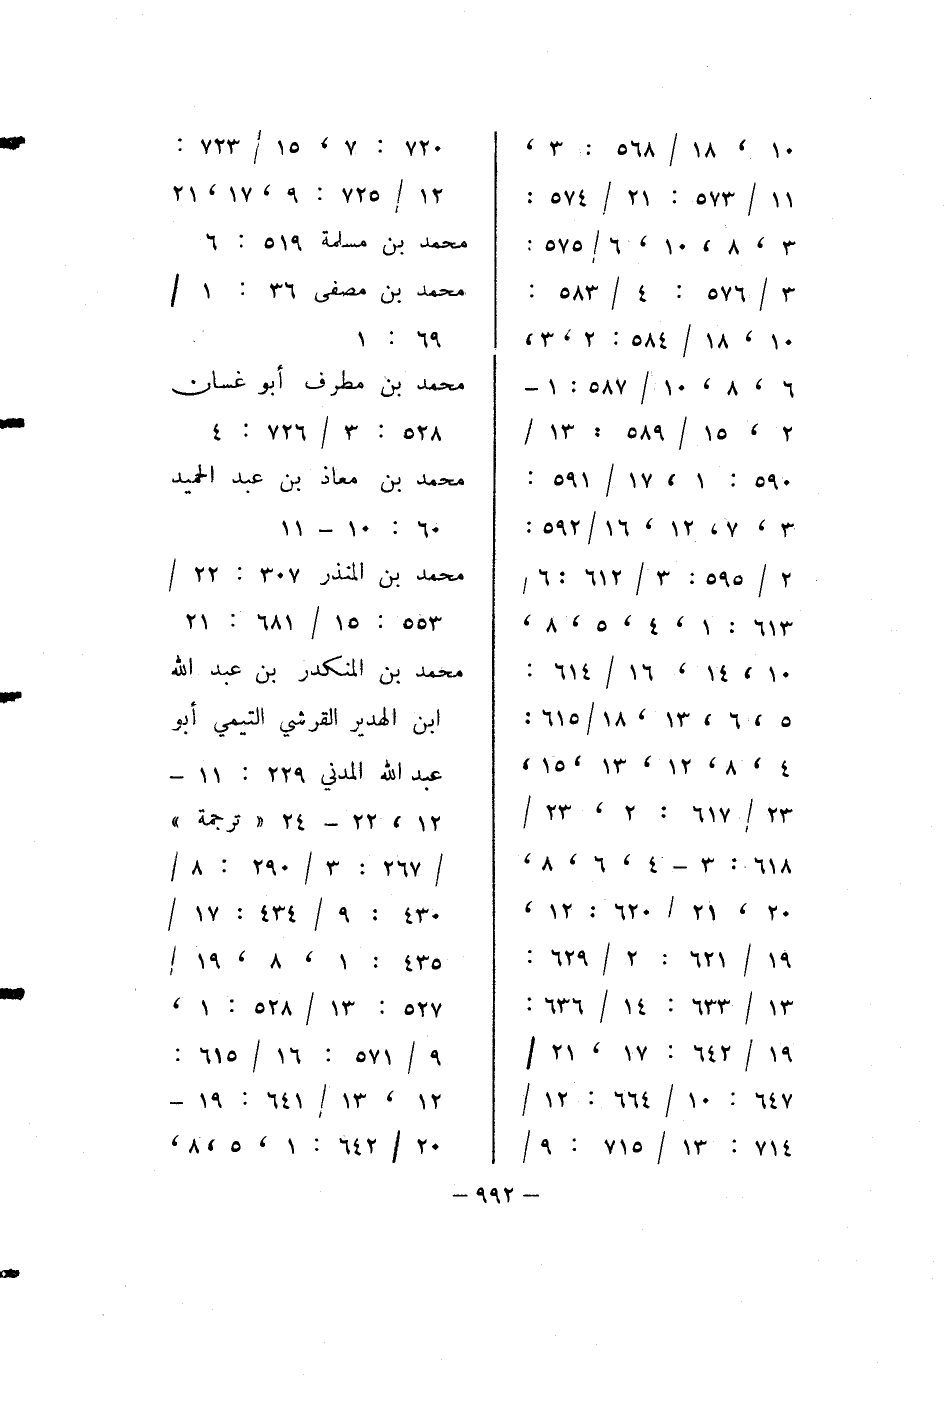 ١٠ ، ١٨ / ٥٦٨ : ٣ ،
١١ / ٥٧٣ : ٢١ / ٥٧٤ :
٣ ، ٨ ، ١٠ ، ٦ / ٥٧٥ :
٣ / ٥٧٦ : ٤ / ٥٨٣ :
١٠ ، ١٨ / ٥٨٤ : ٢ ، ٣ ،
٦ ، ٨ ، ١٠ / ٥٨٧ : ١ –
٢ ، ١٥ / ٥٨٩ : ١٣ /
٥٩٠ : ١ ، ١٧ / ٥٩١ :
٣ ، ٧ ، ١٢ ، ١٦ / ٥٩٢ :
٢ / ٥٩٥ : ٣ / ٦١٢ : ٦ ,
٦١٣ : ١ ، ٤ ، ٥ ، ٨ ،
١٠ ، ١٤ ، ١٦ / ٦١٤ :
٥ ، ٦ ، ١٣ ، ١٨ / ٦١٥ :
٤ ، ٨ ، ١٢ ، ١٣ ، ١٥ ،
٢٣ / ٦١٧ : ٢ ، ٢٣ /
٦١٨ : ٣ – ٤ ، ٦ ، ٨ ،
٢٠ ، ٢١ / ٦٢٠ : ١٢ ،
١٩ / ٦٢١ : ٢ / ٦٢٩ :
١٣ / ٦٣٣ : ١٤ / ٦٣٦ :
١٩ / ٦٤٢ : ١٧ ، ٢١ /
٦٤٧ : ١٠ / ٦٦٤ : ١٢ /
٧١٤ : ١٣ / ٧١٥ : ٩ /
٧٢٠ : ٧ ، ١٥ / ٧٢٣ :
١٢ / ٧٢٥ : ٩ ، ١٧ ، ٢١
محمد بن مسلمة ٥١٩ : ٦
محمد بن مصفى ٣٦ : ١ /
٦٩ : ١
محمد بن مطرف أبو غسان
٥٢٨ : ٣ / ٧٢٦ : ٤
محمد بن معاذ بن عبد الحميد
٦٠ : ١٠ – ١١
محمد بن المنذر ٣٠٧ : ٢٢ /
٥٥٣ : ١٥ / ٦٨١ : ٢١
محمد بن المنكدر بن عبد الله
ابن الهدير القرشي التيمي أبو
عبد الله المدني ٢٢٩ : ١١ –
١٢ ، ٢٢ – ٢٤ « ترجمة »
/ ٢٦٧ : ٣ / ٢٩٠ : ٨ /
٤٣٠ : ٩ / ٤٣٤ : ١٧ /
٤٣٥ : ١ ، ٨ ، ١٩ /
٥٢٧ : ١٣ / ٥٢٨ : ١ ،
٩ / ٥٧١ : ١٦ / ٦١٥ :
١٢ ، ١٣ / ٦٤١ : ١٩ –
٢٠ / ٦٤٢ : ١ ، ٥ ، ٨ ،
– ٩٩٢ –